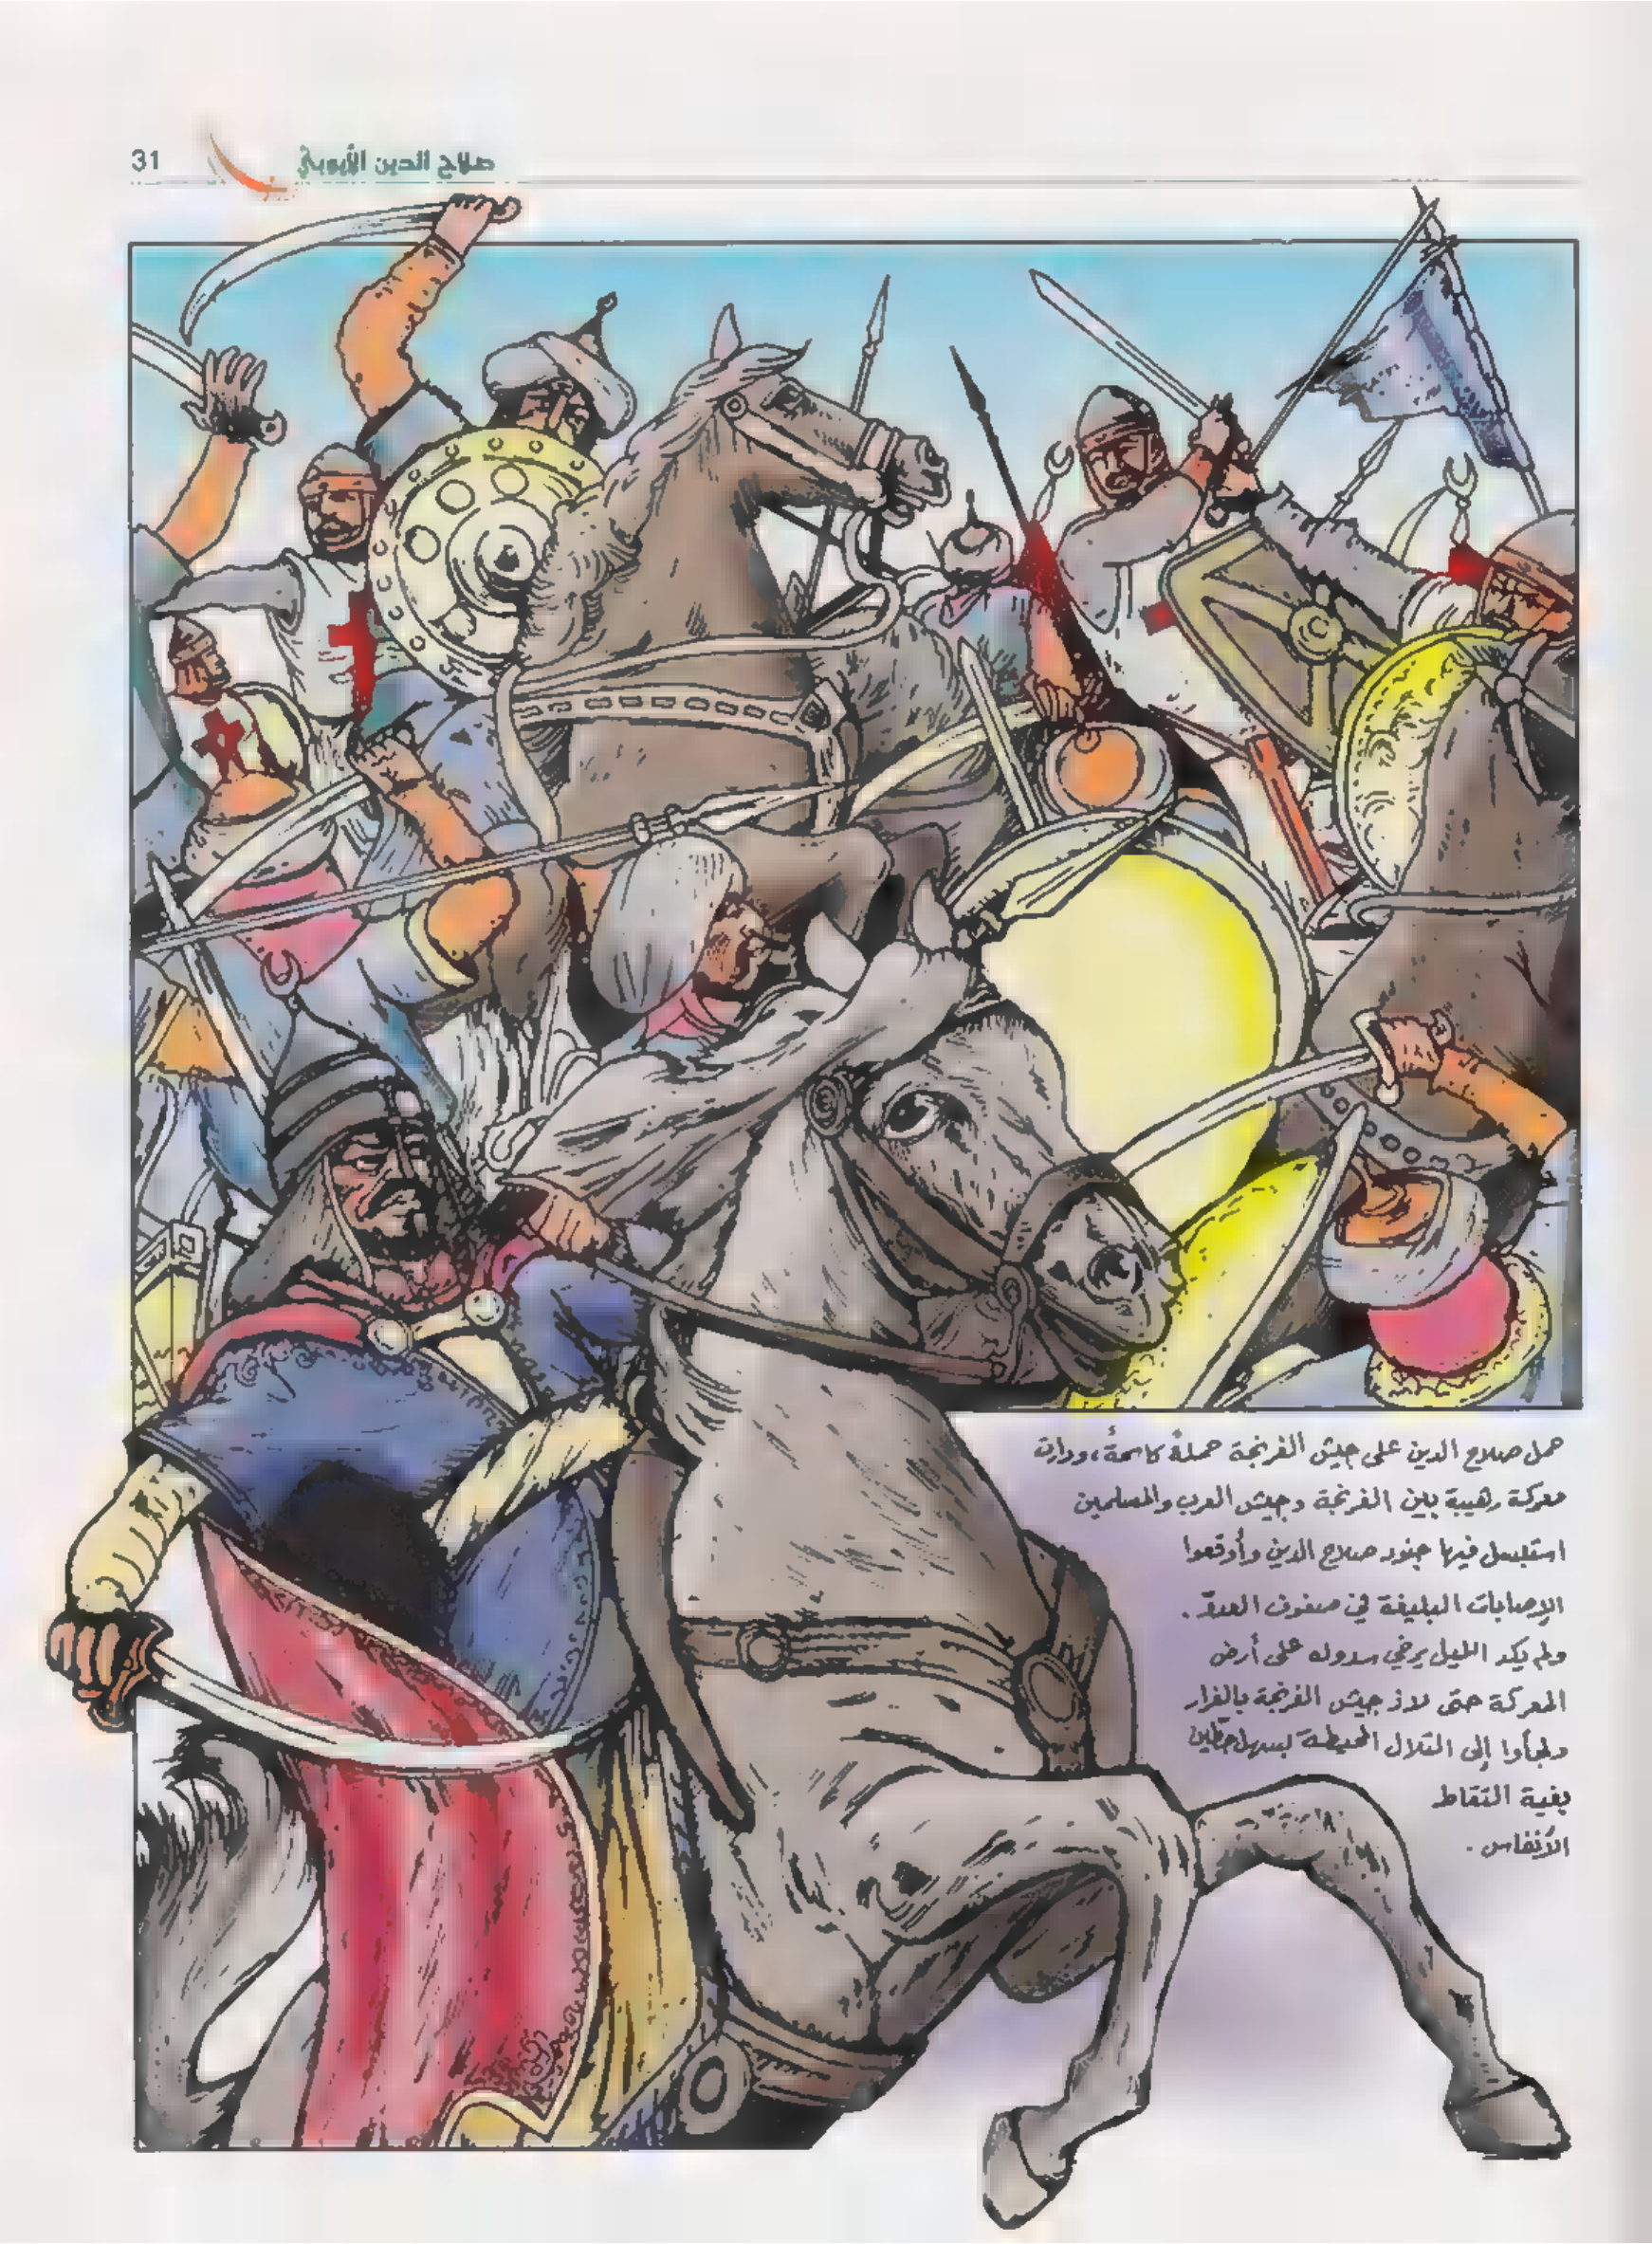 31
صلاح الدين الأيوبي
حمل صلاح الدين على جيش الفرنجة حملةً كاسحةً، ودارت
معركة رهيبة بين الفرنجة وجيش العرب والمسلمين
استبسل فيها جنود صلاح الدين وأوقعوا
الإصابات البليغة في صفوف العدوّ .
ولم يكد الليل يرخي سدوله على أرض
المعركة حتى لاذ جيش الفرنجة بالفرار
ولجأوا إلى التلال المحيطة بسهل حطّين
بغية التقاط
الأنفاس .